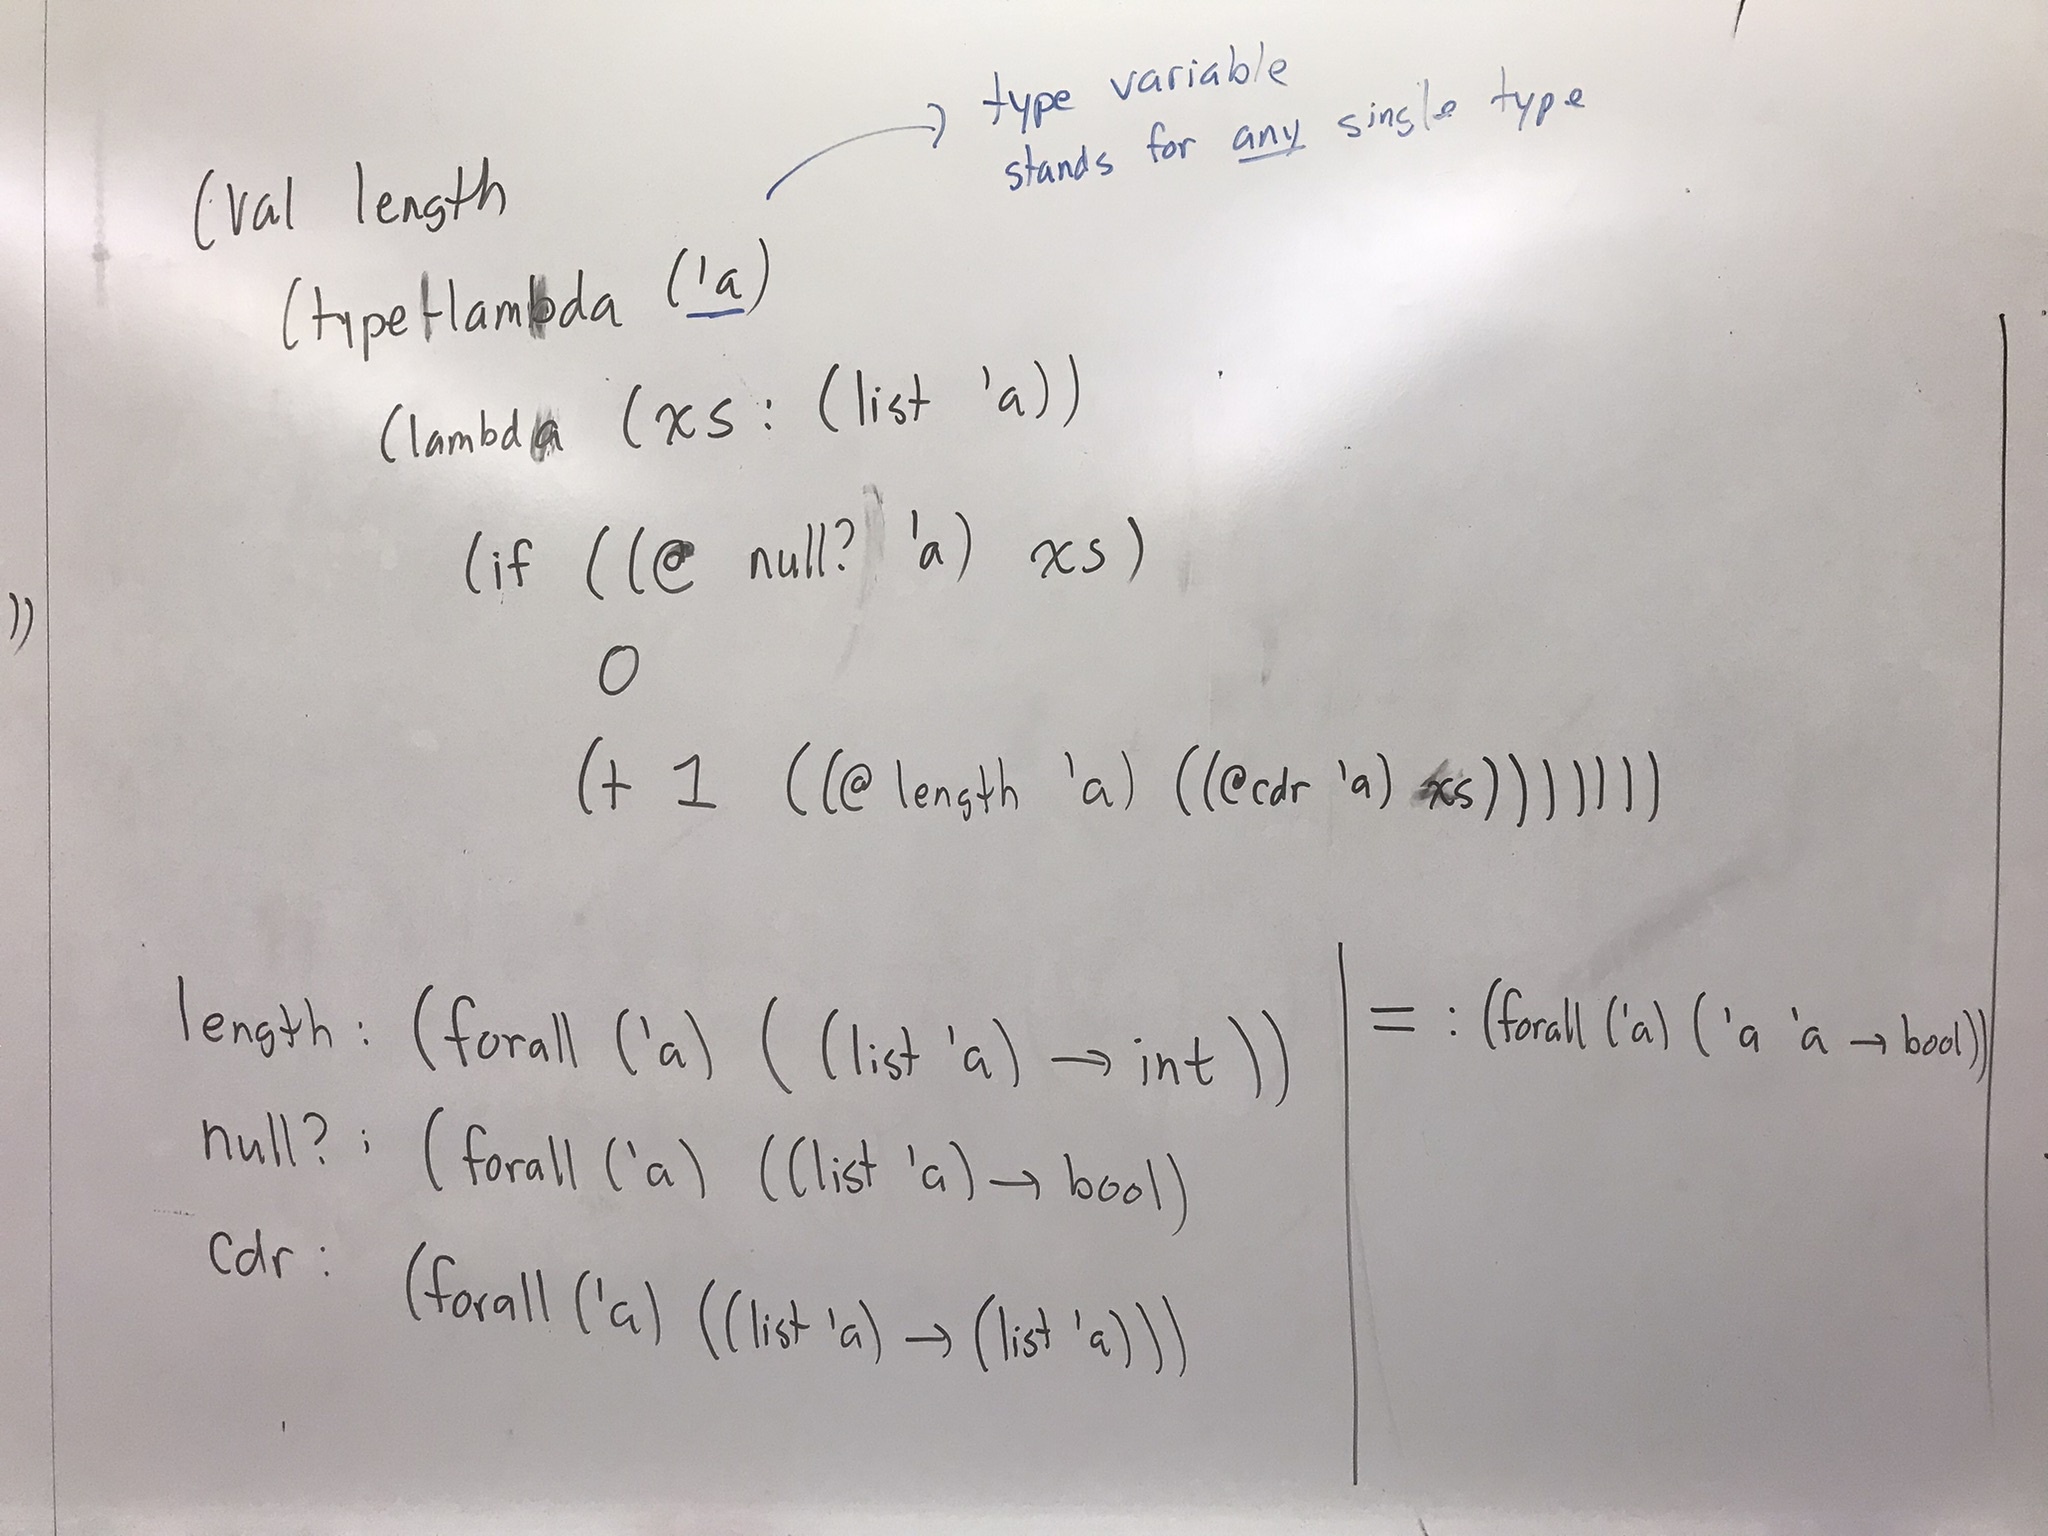 type variable
stands for any single type
(val length
(type-lambda ('a)
(lambda (xs : (list 'a))
(if ((@ null? 'a) xs)
0
(+ 1 ((@ length 'a) ((@cdr 'a) xs)))))))
))
length : (forall ('a) ( (list 'a) → int ))
null? : (forall ('a) ((list 'a) → bool)
cdr : (forall ('a) ((list 'a) → (list 'a)))
= : (forall ('a) ('a 'a → bool))